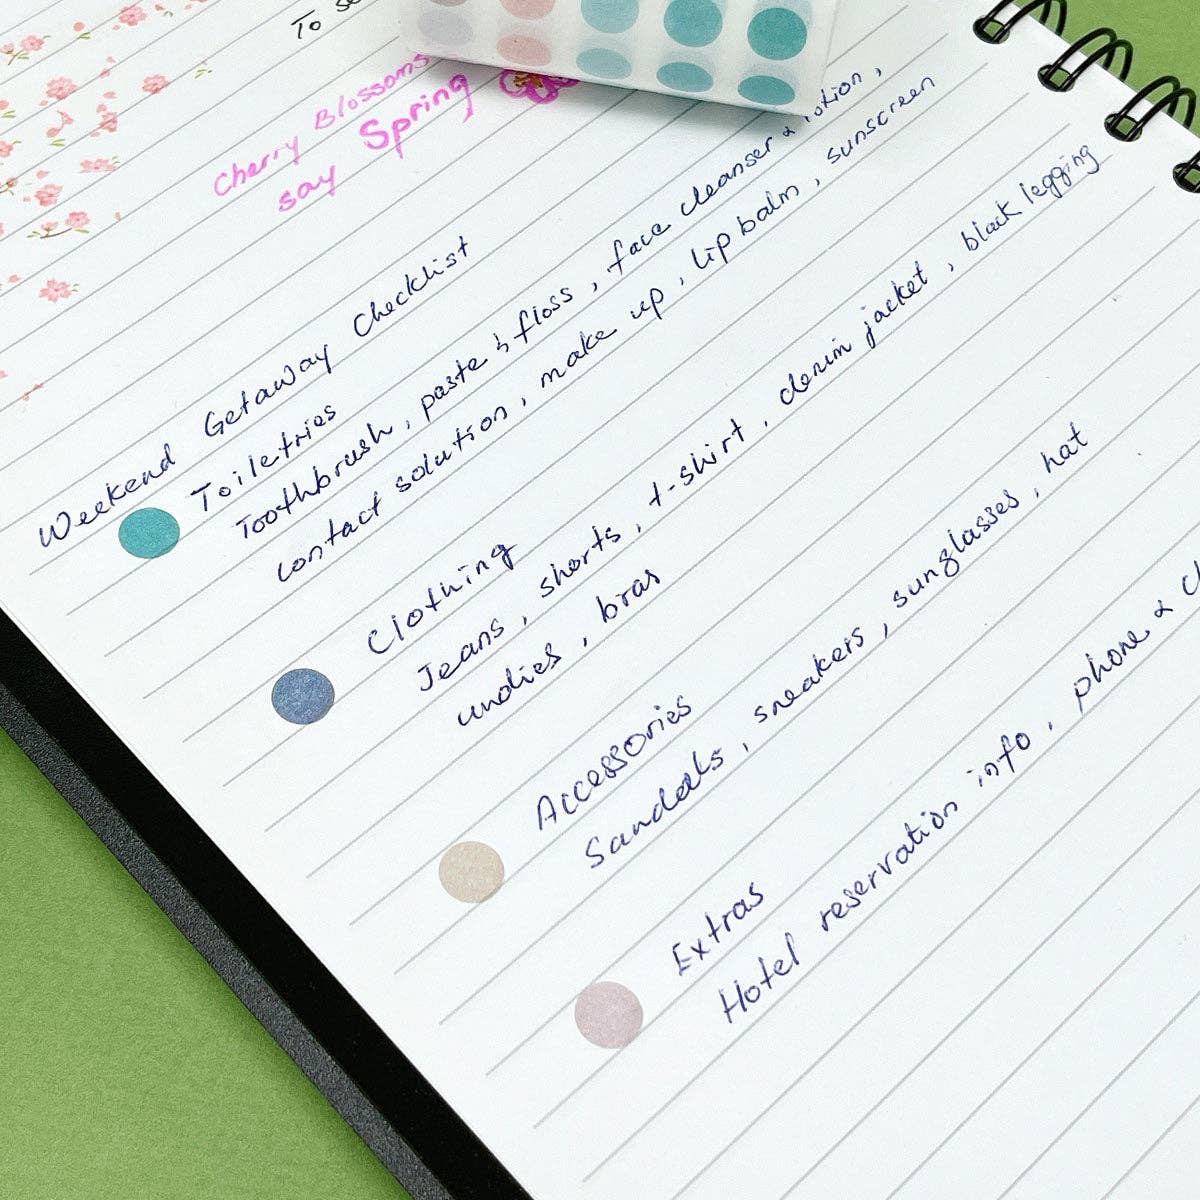 To
Cherry Blossoms
say Spring
Weekend Getaway Checklist
Toiletries
Toothbrush, paste & floss, face cleanser & lotion,
contact solution, make up, lip balm, sunscreen
Clothing
Jeans, shorts, t-shirt, denim jacket, black legging
undies, bras
Accessories
Sandals, sneakers, sunglasses, hat
Extras
Hotel reservation info, phone &